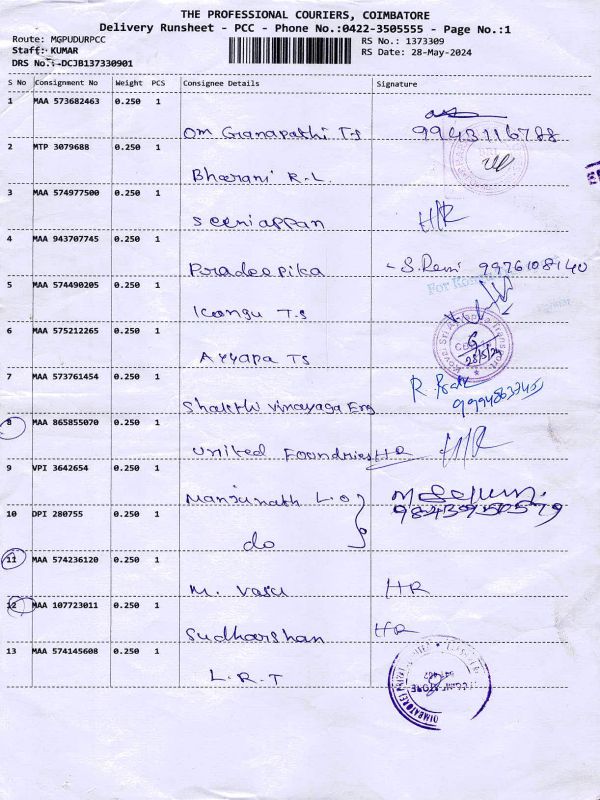 THE PROFESSIONAL COURIERS, COIMBATORE
Delivery Runsheet - PCC - Phone No.:0422-3505555 - Page No.:1
Route: MGPUDURPCC RS No.: 1373309
Staff: KUMAR RS Date: 28-May-2024
DRS No.:-DCJB137330901
S No Consignment No Weight PCS Consignee Details Signature
1 MAA 573682463 0.250 1
Om Granapathi T S 99431 16788
2 MTP 3079688 0.250 1
Bharani R.L.
3 MAA 574977500 0.250 1
Seeniappan H/R
4 MAA 943707745 0.250 1
Pradeepika 9976108140
5 MAA 574490205 0.250 1
For
Kongu T.S
6 MAA 575212265 0.250 1
28/5/24
Ayyapa TS
7 MAA 573761454 0.250 1
Shakthi vinayaga Eng
8 MAA 865855070 0.250 1
United Foundries HR H/R
9 VPI 3642654 0.250 1
Manjunath L.O
10 DPI 280755 0.250 1 9843950579
do
11 MAA 574236120 0.250 1
M. Vasu HR
12 MAA 107723011 0.250 1
Sudharshan HR
13 MAA 574145608 0.250 1
L.R.T